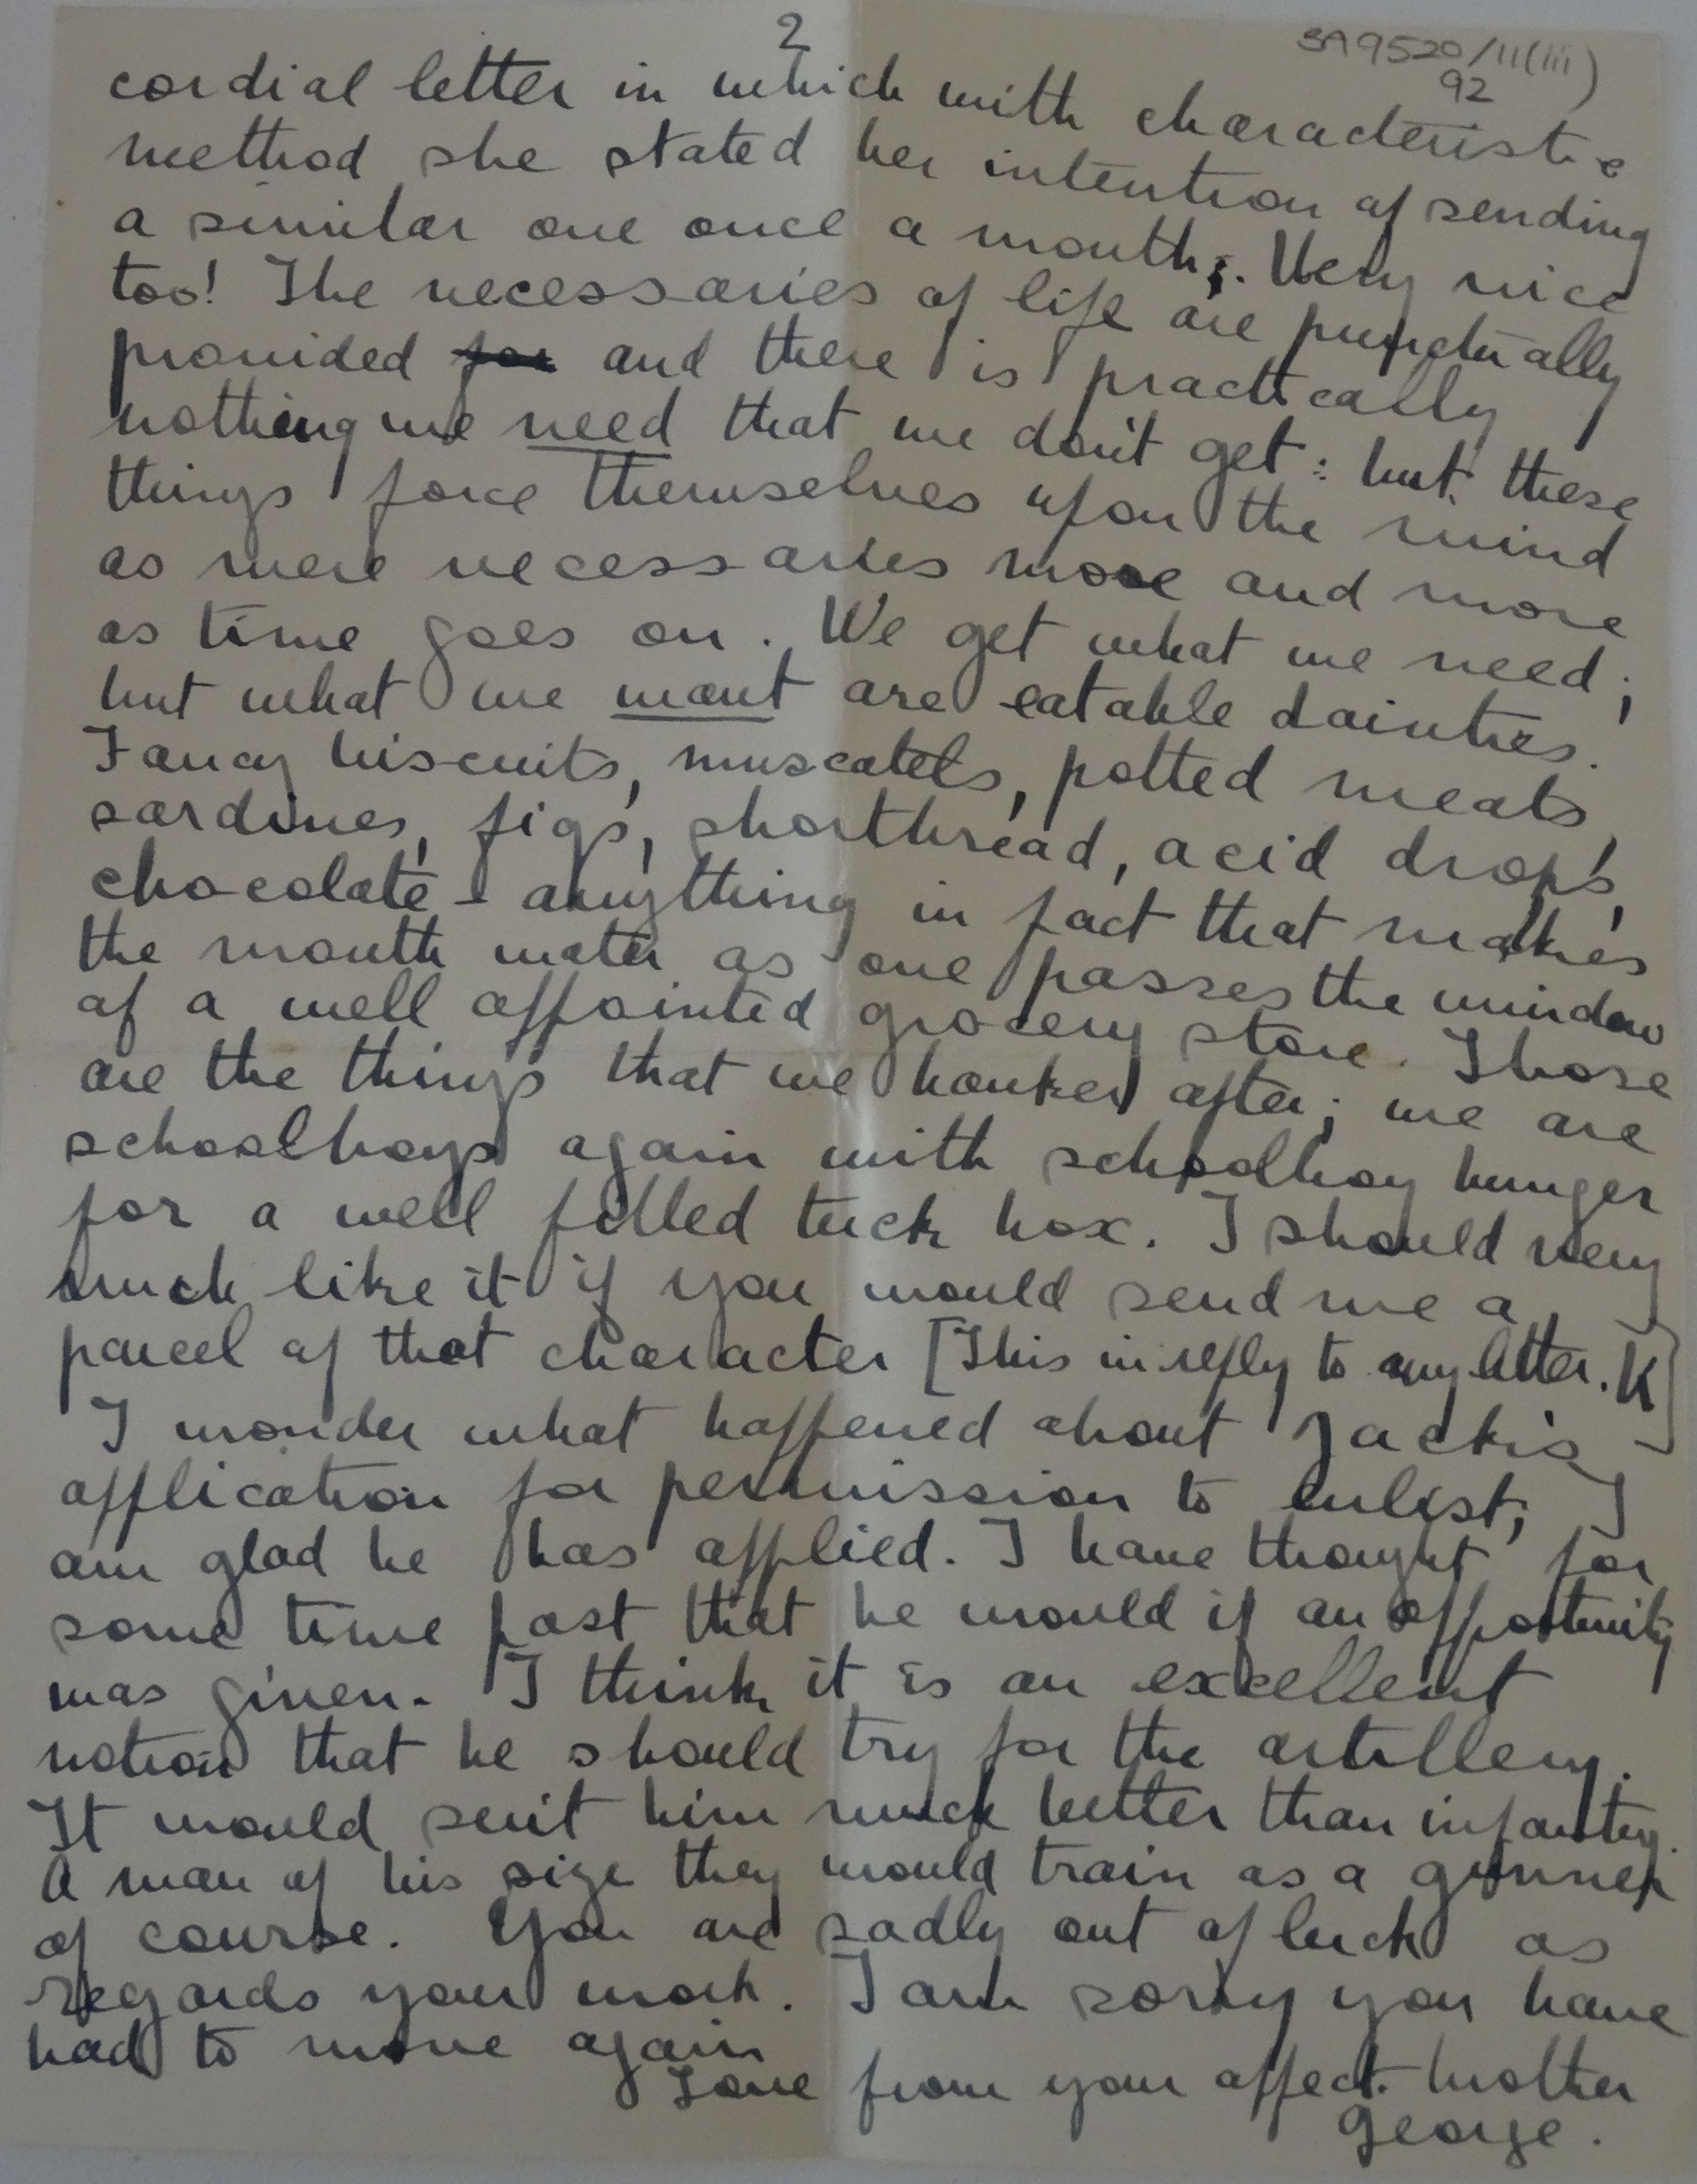 2
SA9520/11(iii)
92
cordial letter in which with characteristic
method she stated her intention of sending
a similar one once a month. Very nice
too! The necessaries of life are punctually
provided for and there is practically
nothing we need that we don't get: but these
things force themselves upon the mind
as mere necessaries more and more
as time goes on. We get what we need;
but what we want are eatable dainties.
Fancy biscuits, muscatels, potted meats,
sardines, figs, shortbread, acid drops,
chocolate - anything in fact that makes
the mouth water as one passes the window
of a well appointed grocery store. Those
are the things that we hanker after; we are
schoolboys again with schoolboy hunger
for a well filled tuck box. I should very
much like it if you would send me a
parcel of that character [This in reply to my letter. K]
I wonder what happened about Jack's
application for permission to enlist; I
am glad he has applied. I have thought for
some time past that he would if an opportunity
was given. I think it is an excellent
notion that he should try for the artillery.
It would suit him much better than infantry.
A man of his size they would train as a gunner
of course. You are sadly out of luck as
regards your work. I am sorry you have
had to move again
Love from your affect. brother
George.